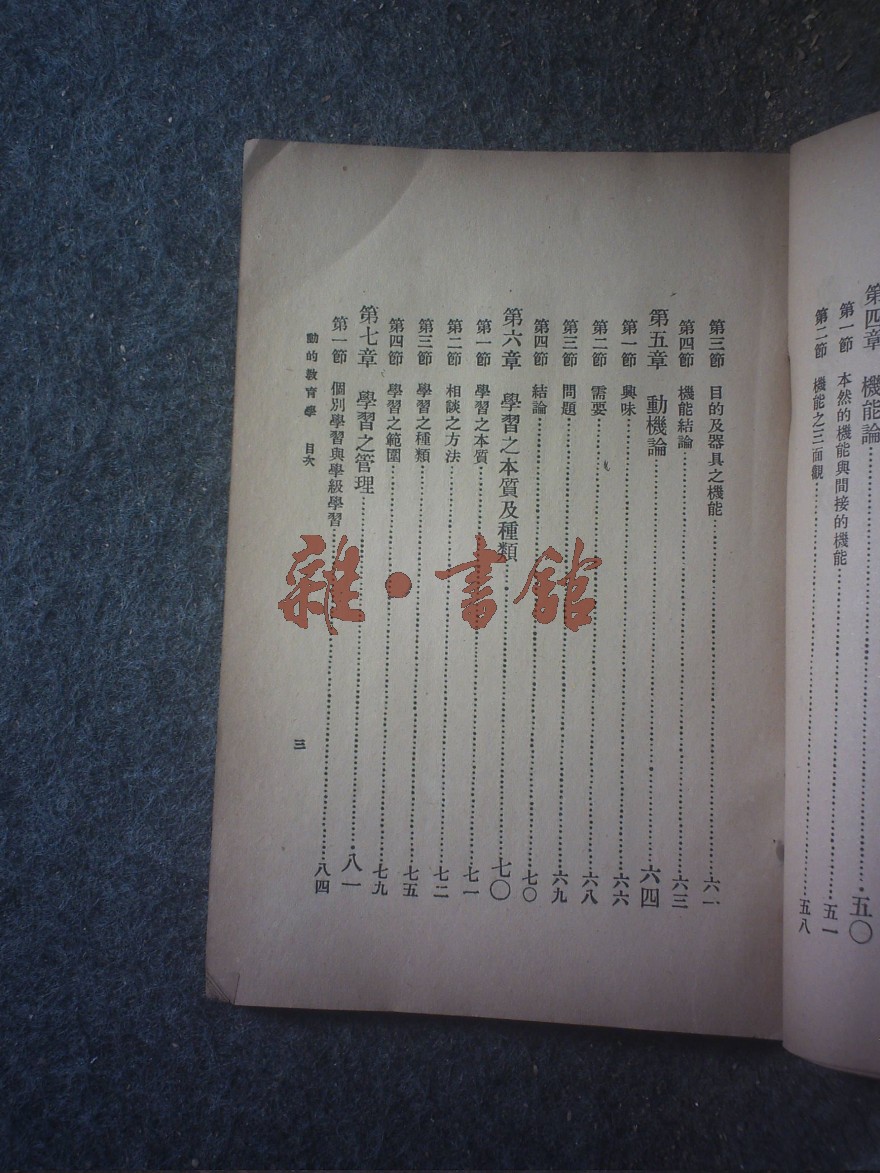 第四章　機能論⋯⋯五〇
第一節　本然的機能與間接的機能⋯⋯五一
第二節　機能之三面觀⋯⋯五八
第三節　目的及器具之機能⋯⋯六一
第四節　機能結論⋯⋯六三
第五章　動機論⋯⋯六四
第一節　興味⋯⋯六六
第二節　需要⋯⋯六八
第三節　問題⋯⋯六九
第四節　結論⋯⋯七〇
第六章　學習之本質及種類⋯⋯七〇
第一節　學習之本質⋯⋯七一
第二節　相談之方法⋯⋯七二
第三節　學習之種類⋯⋯七五
第四節　學習之範圍⋯⋯七九
第七章　學習之管理⋯⋯八一
第一節　個別學習與學級學習⋯⋯八四
動的教育學　目次
三
雜·書館